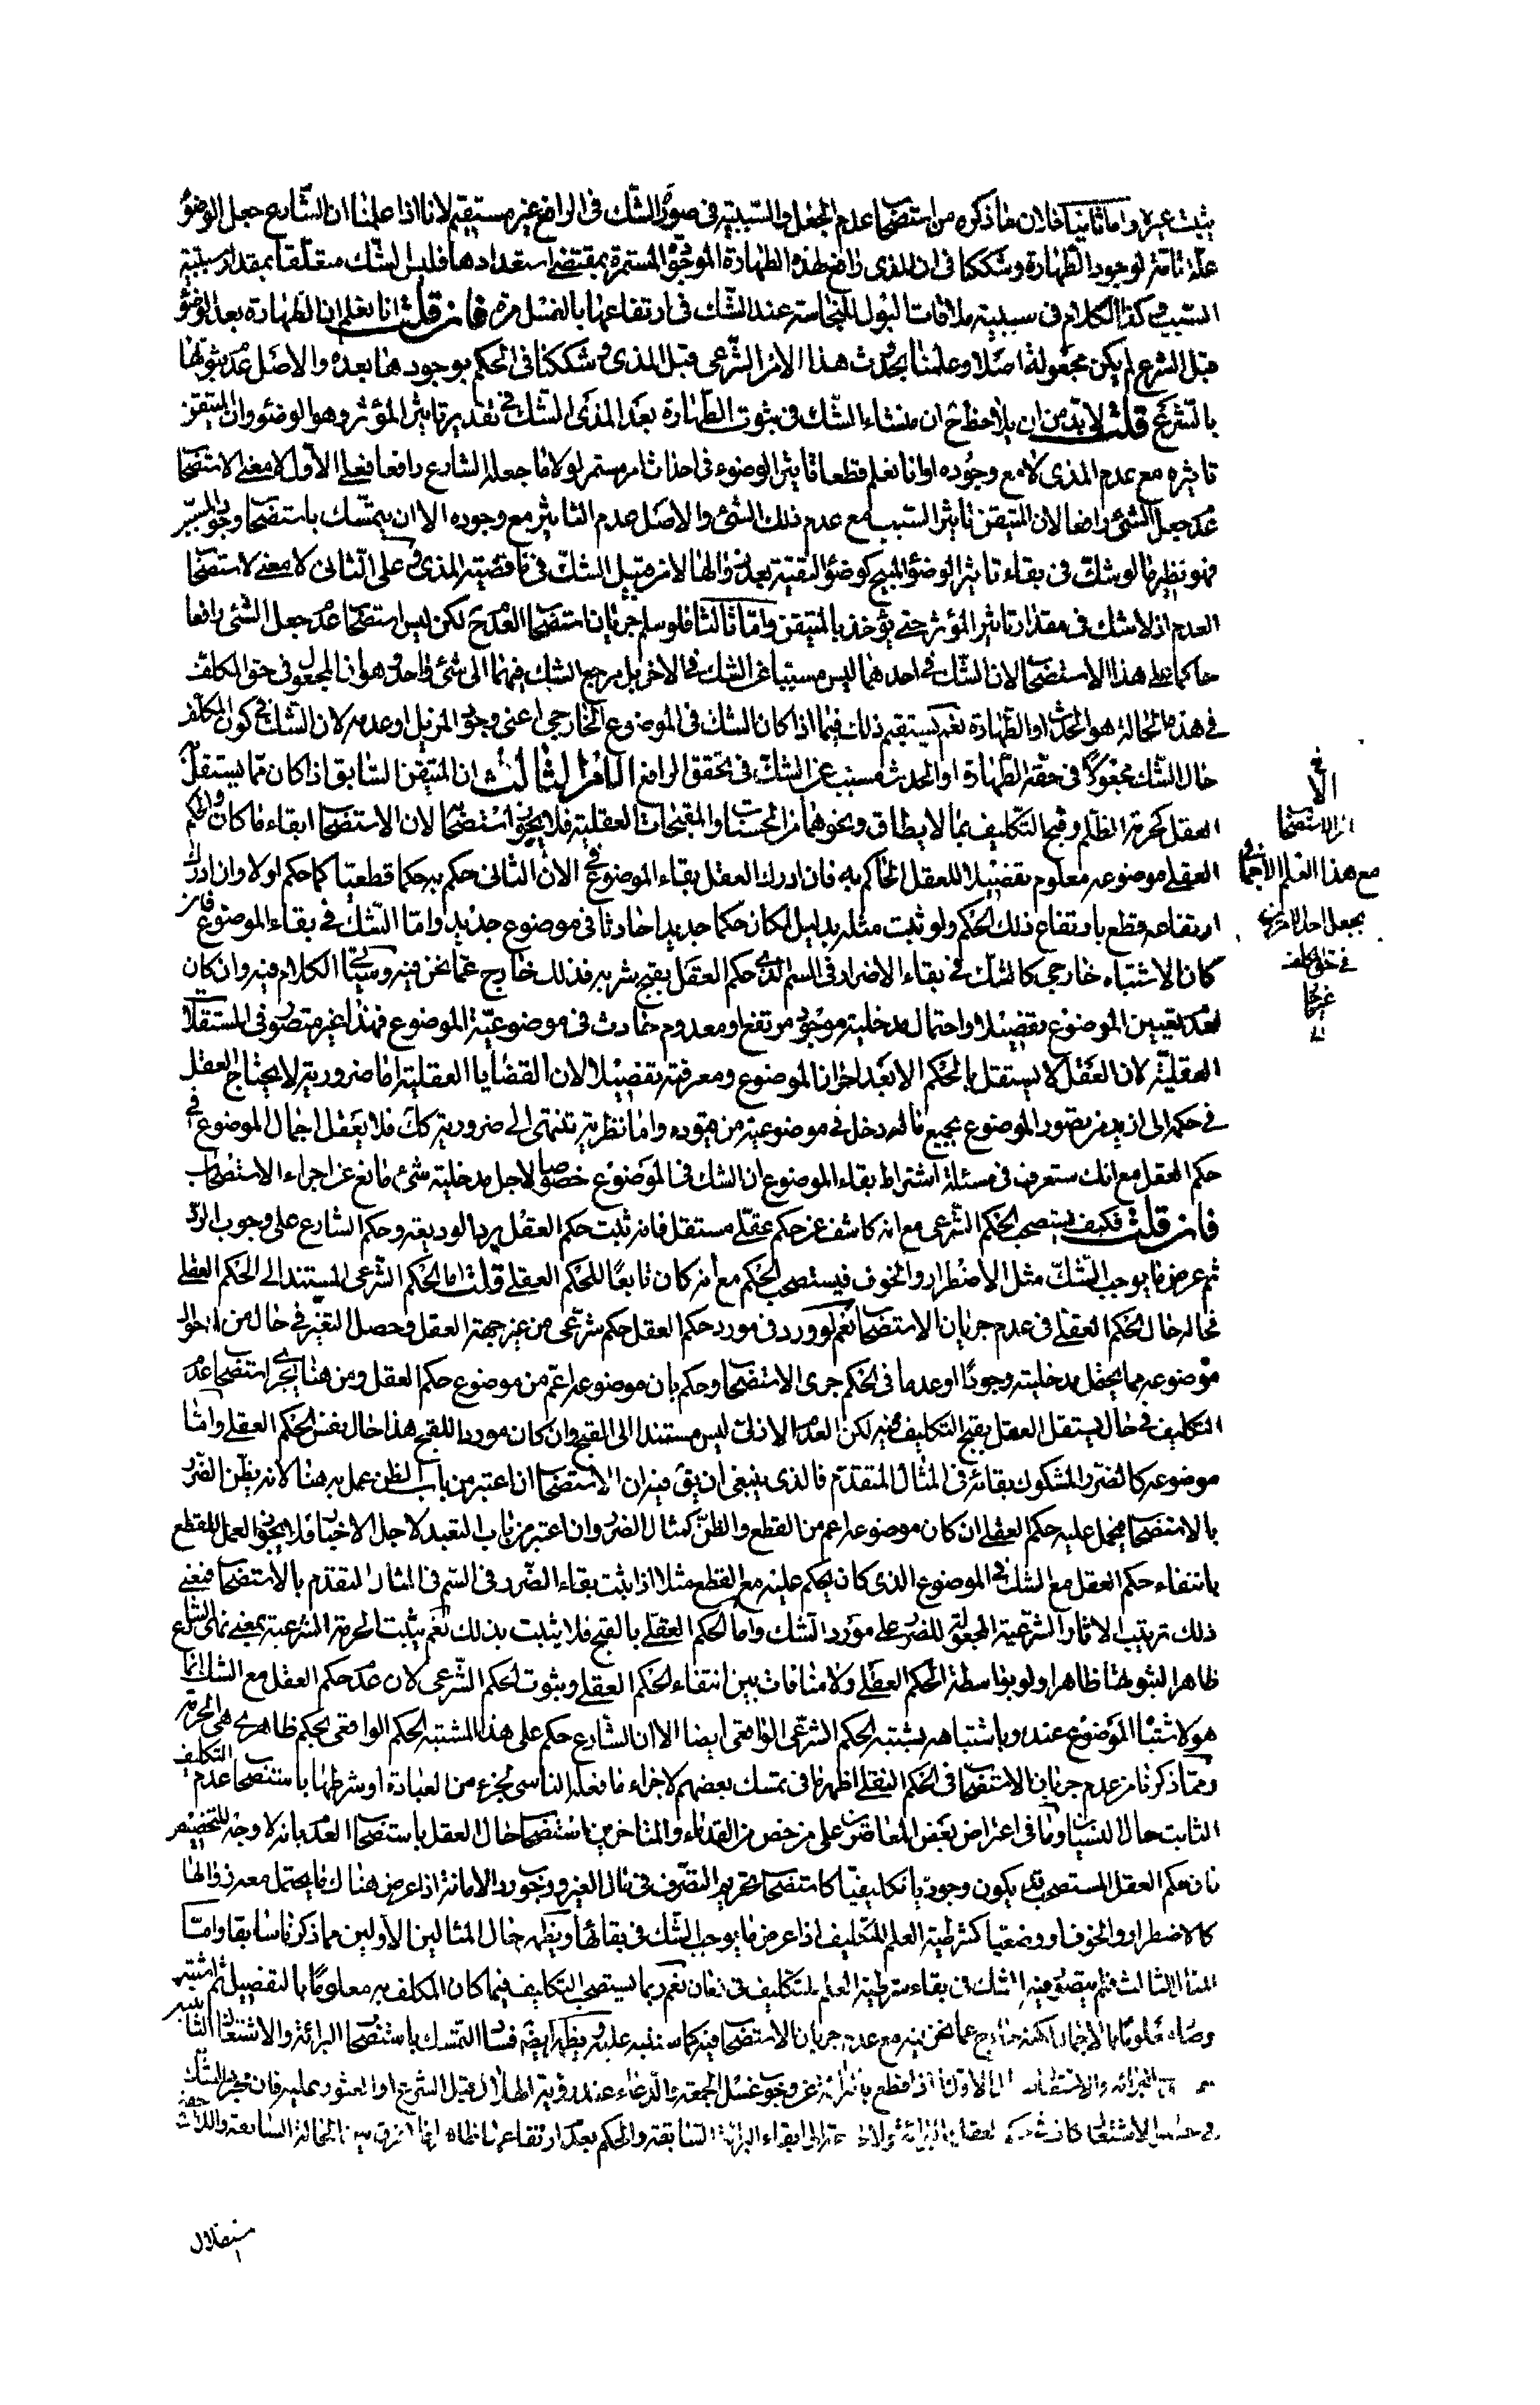 يثبت غيره واما ثانيا فلان ما ذكره من استصحاب عدم الجعل والسببية فى صورة الشك فى الرافع غير مستقيم لانا اذا علمنا ان الشارع جعل الوضوء
علة تامة لوجود الطهارة وشككنا فى ان المذى رافع لهذه الطهارة الموجودة المستمرة بمقتضى استعدادها فليس الشك متعلقا بمقدار سببية
السبب وكذا الكلام فى سببية ملاقات البول للنجاسة عند الشك فى ارتفاعها بالغسل مرة فان قلت انا نعلم ان الطهارة بعد الوضوء
قبل الشرع لم يكن مجعولة اصلا وعلمنا بحدث هذا الامر الشرعى قبل المذى وشككنا فى الحكم بوجودها بعده والاصل عدم ثبوتها
بالشرع قلت لا بد من ان يلاحظ ح ان منشاء الشك فى ثبوت الطهارة بعد المذى الشك فى تقدير تاثير المؤثر وهو الوضوء وان المتيقن
تاثيره مع عدم المذى لا مع وجوده او انا نعلم قطعا تاثير الوضوء فى احداث امر مستمر لولا ما جعله الشارع رافعا فعلى الأول لا معنى لاستصحاب
عدم جعل الشئ رافعا لان المتيقن تاثير السبب مع عدم ذلك الشئ والاصل عدم التاثير مع وجوده الا ان يتمسك باستصحاب وجود المسبب
فهو نظير ما لو شك فى بقاء تاثير الوضوء المبيح كوضوء التقية بعد زوالها لا من قبيل الشك فى ناقضية المذى وعلى الثانى لا معنى لاستصحاب
العدم اذ لا شك فى مقدار تاثير المؤثر حتى يؤخذ بالمتيقن واما ثالثا فلو سلم جريان استصحاب العدم ح لكن ليس استصحاب عدم جعل الشئ رافعا
حاكما على هذا الاستصحاب لان الشك فى احدهما ليس مسببا عن الشك فى الاخر بل مرجع الشك فيهما الى شئ واحد وهو ان المجعول فى حق المكلف
فى هذه الحالة هو الحدث او الطهارة نعم يستقيم ذلك فيما اذا كان الشك فى الموضوع الخارجى اعنى وجود المزيل او عدمه لان الشك فى كون المكلف
حال الشك مجعولا فى حقه الطهارة او الحدث مسبب عن الشك فى تحقق الرافع الامر الثالث ان المتيقن السابق اذا كان مما يستقل به
العقل كحرمة الظلم وقبح التكليف بما لا يطاق ونحوهما من المحسنات والمقبحات العقلية فلا يجوز استصحابه لان الاستصحاب ابقاء ما كان والحكم
العقلى موضوعه معلوم تفصيلا للعقل الحاكم به فان ادرك العقل بقاء الموضوع فى الان الثانى حكم به حكما قطعيا كما حكم اولا وان ادرك
ارتفاعه قطع بارتفاع ذلك الحكم ولو ثبت مثله بدليل لكان حكما جديدا حادثا فى موضوع جديد واما الشك فى بقاء الموضوع فان
كان لاشتباه خارجى كالشك فى بقاء الاضرار فى السم الذى حكم العقل بقبح شربه فذلك خارج عما نحن فيه وسياتى الكلام فيه وان كان
لعدم تعيين الموضوع تفصيلا واحتمال مدخلية موجود مرتفع او معدوم حادث فى موضوعية الموضوع فهذا غير متصور فى المستقلات
العقلية لان العقل لا يستقل بالحكم الا بعد احراز الموضوع ومعرفته تفصيلا لان القضايا العقلية اما ضرورية لا يحتاج العقل
فى حكمه الى ازيد من تصور الموضوع بجميع ما له دخل فى موضوعيته من قيوده واما نظرية تنتهى الى ضرورية كك فلا يعقل اجمال الموضوع فى
حكم العقل مع انك ستعرف فى مسئلة اشتراط بقاء الموضوع ان الشك فى الموضوع خصوصا لاجل مدخلية شئ مانع عن اجراء الاستصحاب
فان قلت فكيف يستصحب الحكم الشرعى مع انه كاشف عن حكم عقلى مستقل فانه ثبت حكم العقل برد الوديعة وحكم الشارع على وجوب الرد
ثم عرض ما يوجب الشك مثل الاضطرار والخوف فيستصحب الحكم مع انه كان تابعا للحكم العقلى قلت اما الحكم الشرعى المستند الى الحكم العقلى
فحاله حال الحكم العقلى فى عدم جريان الاستصحاب نعم لو ورد فى مورد حكم العقل حكم شرعى من غير جهة العقل وحصل التغير فى حال من احوال
موضوعه مما يحتمل مدخليته وجودا او عدما فى الحكم جرى الاستصحاب وحكم بان موضوعه اعم من موضوع حكم العقل ومن هنا يجرى استصحاب عدم
التكليف فى حال يستقل العقل بقبح التكليف فيه لكن العدم الازلى ليس مستندا الى القبح وان كان موردا للقبح هذا حال نفس الحكم العقلى واما
موضوعه كالضرر المشكوك بقائه فى المثال المتقدم فالذى ينبغى ان يق فيه ان الاستصحاب ان اعتبر من باب الظن عمل به هنا لانه يظن الضرر
بالاستصحاب فيحمل عليه حكم العقلى ان كان موضوعه اعم من القطع والظن كمثال الضرر وان اعتبر من باب التعبد لاجل الاخبار فلا يجوز العمل للقطع
بانتفاء حكم العقل مع الشك فى الموضوع الذى كان يحكم عليه مع القطع مثلا اذا ثبت بقاء الضرر فى السم فى المثال المتقدم بالاستصحاب فمعنى
ذلك ترتيب الاثار الشرعية المجعولة للضرر على مورد الشك واما الحكم العقلى بالقبح فلا يثبت بذلك نعم يثبت الحرمة الشرعية بمعنى نهى الشارع
ظاهرا لثبوتها ظاهرا ولو بواسطة الحكم العقلى ولا منافات بين انتفاء الحكم العقلى وثبوت الحكم الشرعى لان عدم حكم العقل مع الشك انما
هو لاشتباه الموضوع عنده وباشتباهه يشتبه الحكم الشرعى الواقعى ايضا الا ان الشارع حكم على هذا المشتبه الحكم الواقعى بحكم ظاهرى هى الحرمة
ومما ذكرنا من عدم جريان الاستصحاب فى الحكم العقلى ظهر ما فى تمسك بعضهم لاجزاء ما فعله الناسى لجزء من العبادة او شرطها باستصحاب عدم التكليف
الثابت حال النسيان وما فى اعتراض بعض المعاصرين على من خص من القدماء والمتاخرين استصحاب حال العقل باستصحاب العدم بانه لا وجه للتخصيص
فان حكم العقل المستصحب قد يكون وجوديا تكليفيا كاستصحاب تحريم التصرف فى مال الغير ووجوب رد الامانة اذا عرض هناك ما يحتمل معه زوالها
كالاضطرار والخوف او وضعيا كشرطية العلم للتكليف اذا عرض ما يوجب الشك فى بقائها ويظهر حال المثالين الأولين مما ذكرنا سابقا واما
المثال الثالث فلم يتصور فيه الشك فى بقاء شرطية العلم للتكليف فى زمان نعم ربما يستصحب التكليف فيما كان المكلف به معلوما بالتفصيل ثم اشتبه
وصار معلوما بالاجمال لكنه خارج عما نحن فيه مع عدم جريان الاستصحاب فيه كما سننبه عليه ويظهر ايضا فساد التمسك باستصحاب البرائة والاشتغال الثابتين
البرائة والاشتغال الاول اذا قطع بالبرائة عن وجوب غسل الجمعة والدعاء عند رؤية الهلال قبل الشرع او العثور عليه فان مجرد الشك
فى حصول الاشتغال كاف فى حكم العقل بالبرائة ولا حاجة الى ابقاء البرائة السابقة والحكم بعد ارتفاعها ظاهرا فلا فرق بين الحالة السابقة واللاحقة
مع هذا العلم الاجمالى
بجعل احد الامرين
فى حق المكلف